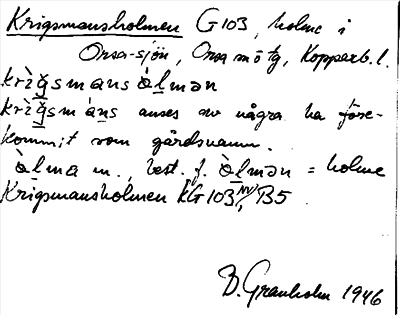 Krigsmansholmen G 103, holme i
Orsa-sjön, Orsa m o tg, Kopparb. l.
krìǧsmansòl̥mən
krìǧsmàns anses av några ha före-
kommit som gårdsnamn.
òl̥ma m., best. f. òl̥mən = holme
Krigsmansholmen kG 103 NV, B5.
B. Granholm 1946